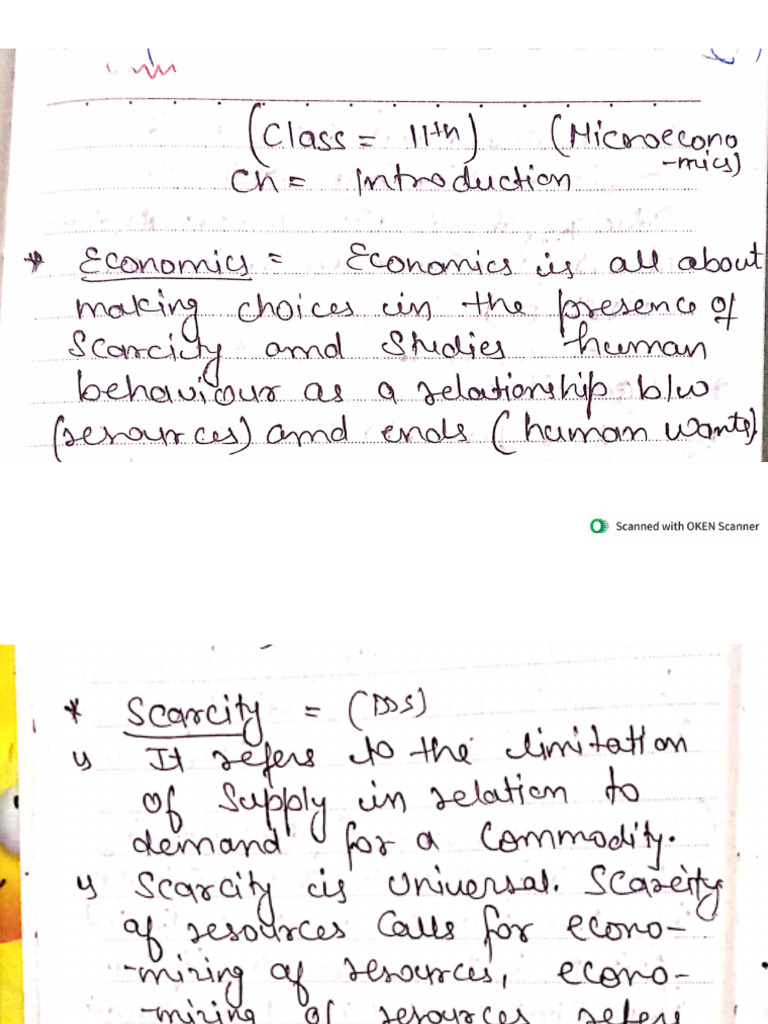 (Class = 11th) (Microecono
-mics)
Ch = Introduction
* Economics = Economics is all about
making choices in the presence of
Scarcity and Studies human
behaviour as a relationship b/w
(resources) and ends (human wants).
Scanned with OKEN Scanner
* Scarcity = (D>S)
It refers to the limitation
of Supply in relation to
demand for a Commodity.
Scarcity is Universal. Scarcity
of resources Calls for econo-
-mizing of resources, econo-
-mizing of resources refers